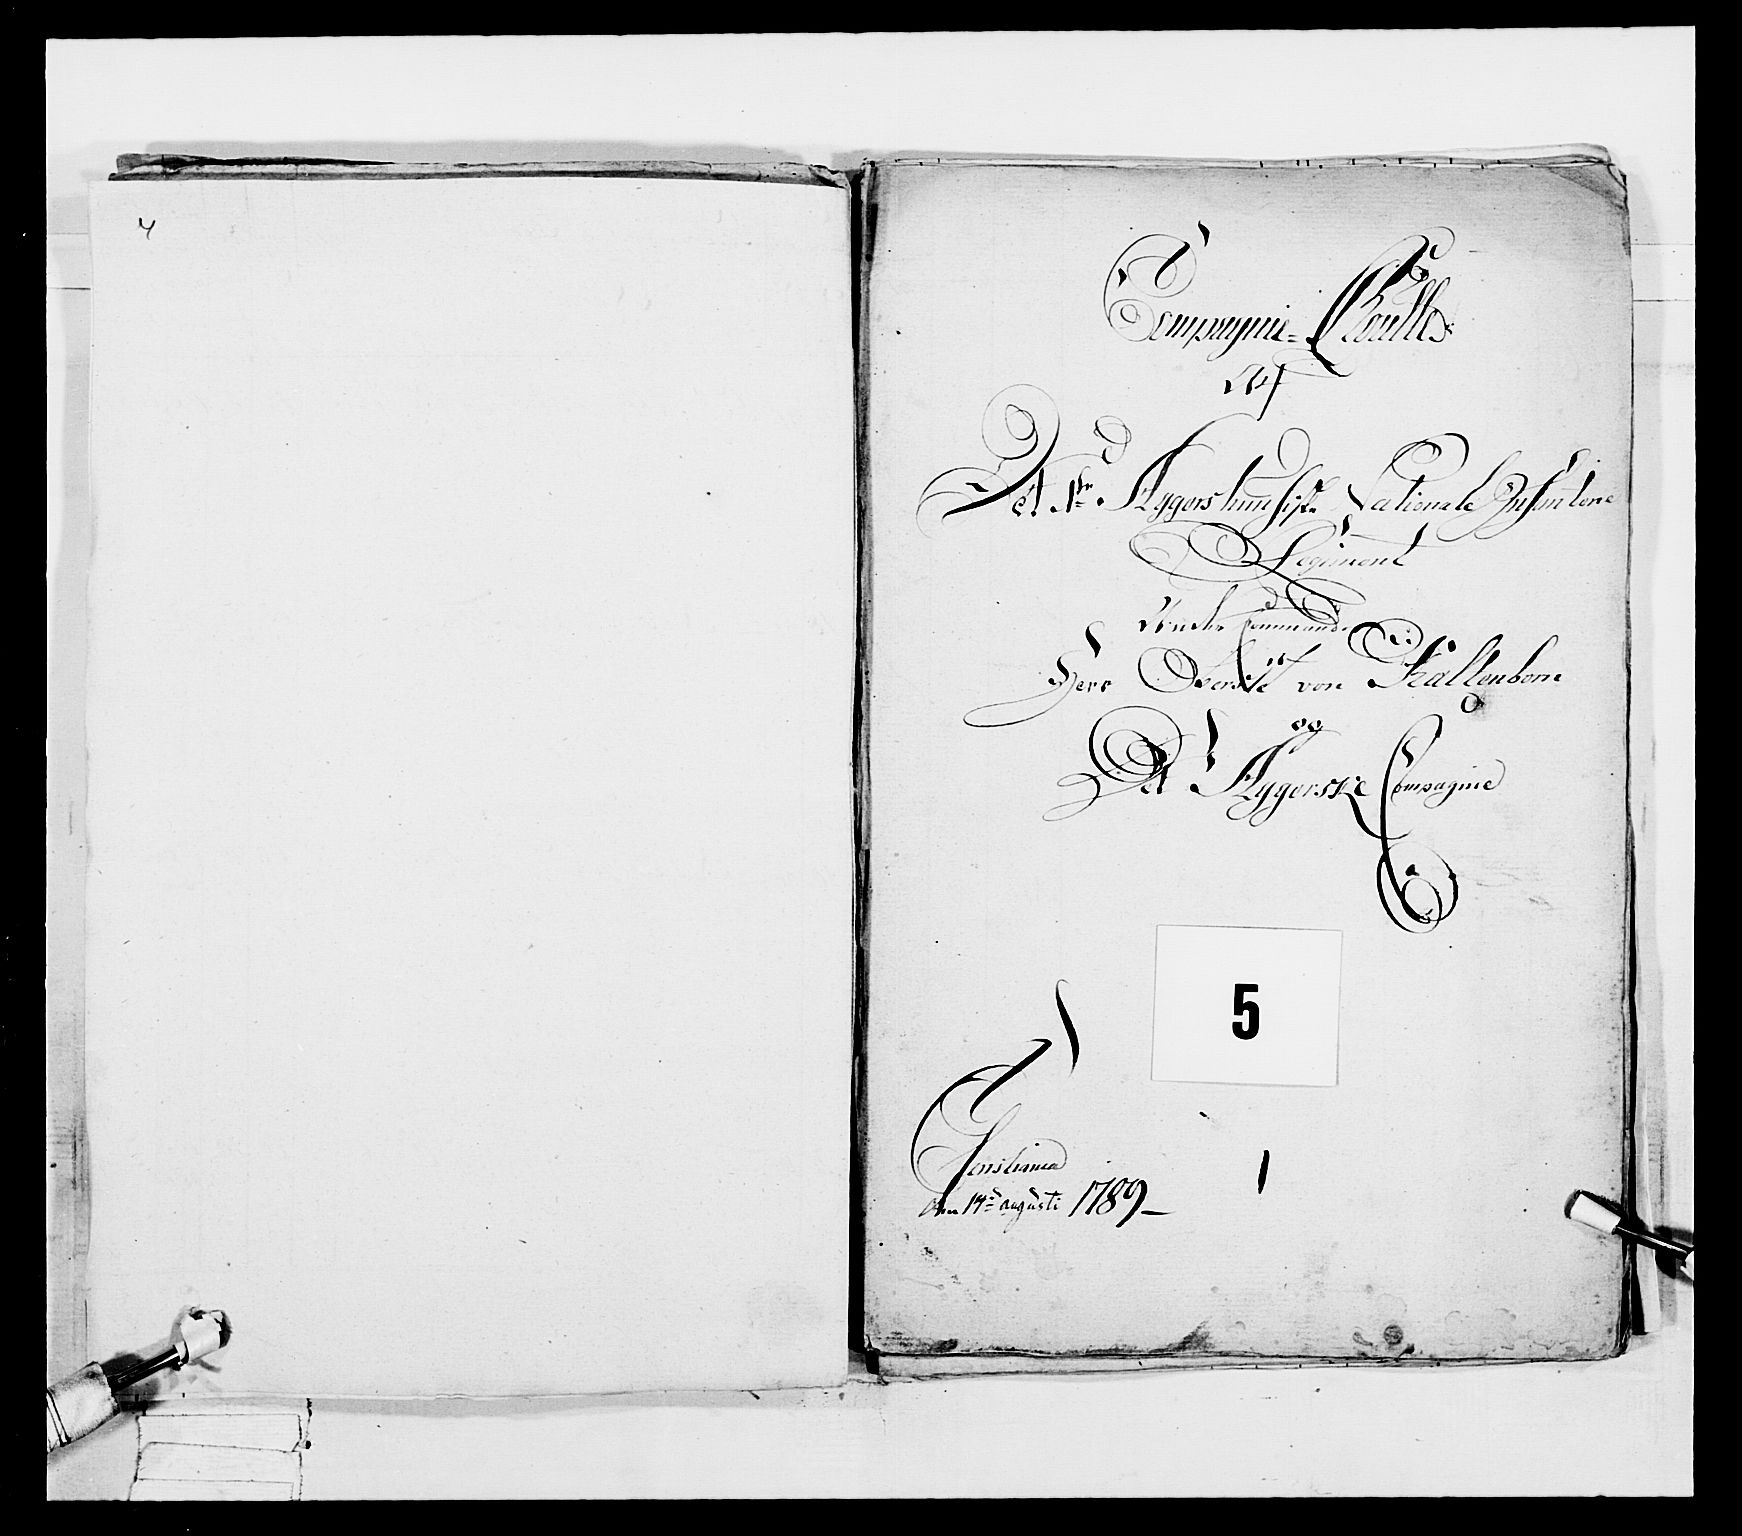 4
Compagnie-Roulle
Af
Det 1te Aggershuusiske Nationale Infanterie
Regiment
Under Commando
af
Herr Oberste von Kaltenborn
og
Det Aggerske Compagnie
5
Christiania
den 14de augusti 1789
1